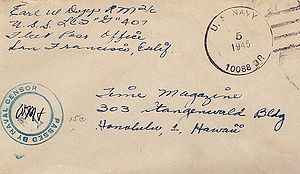 Earl W Dopp RM2/c
U.S.S. LCS "D" 407
Fleet Post Office
San Francisco, Calif
U.S. NAVY
5
1945
10088 BR.
PASSED BY NAVAL CENSOR
15c
Time Magazine
303 Stangenwald Bldg
Honolulu, 1, Hawaii